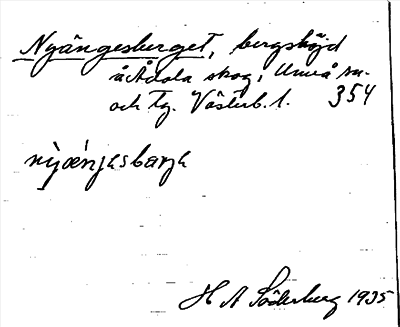 Nyängesberget, bergshöjd
å Ådala skog, Umeå sn.
och tg. Västerb. l. 354
nỳæńjəsbarjə
H A Söderberg 1935